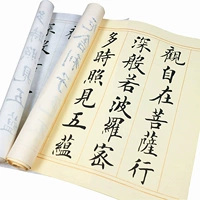 觀自在菩薩行
深般若波羅密
多時照見五蘊